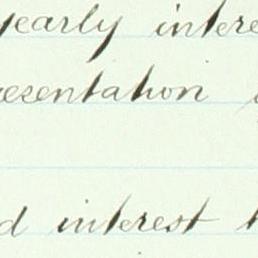 yearly intere
esentation
d interest t